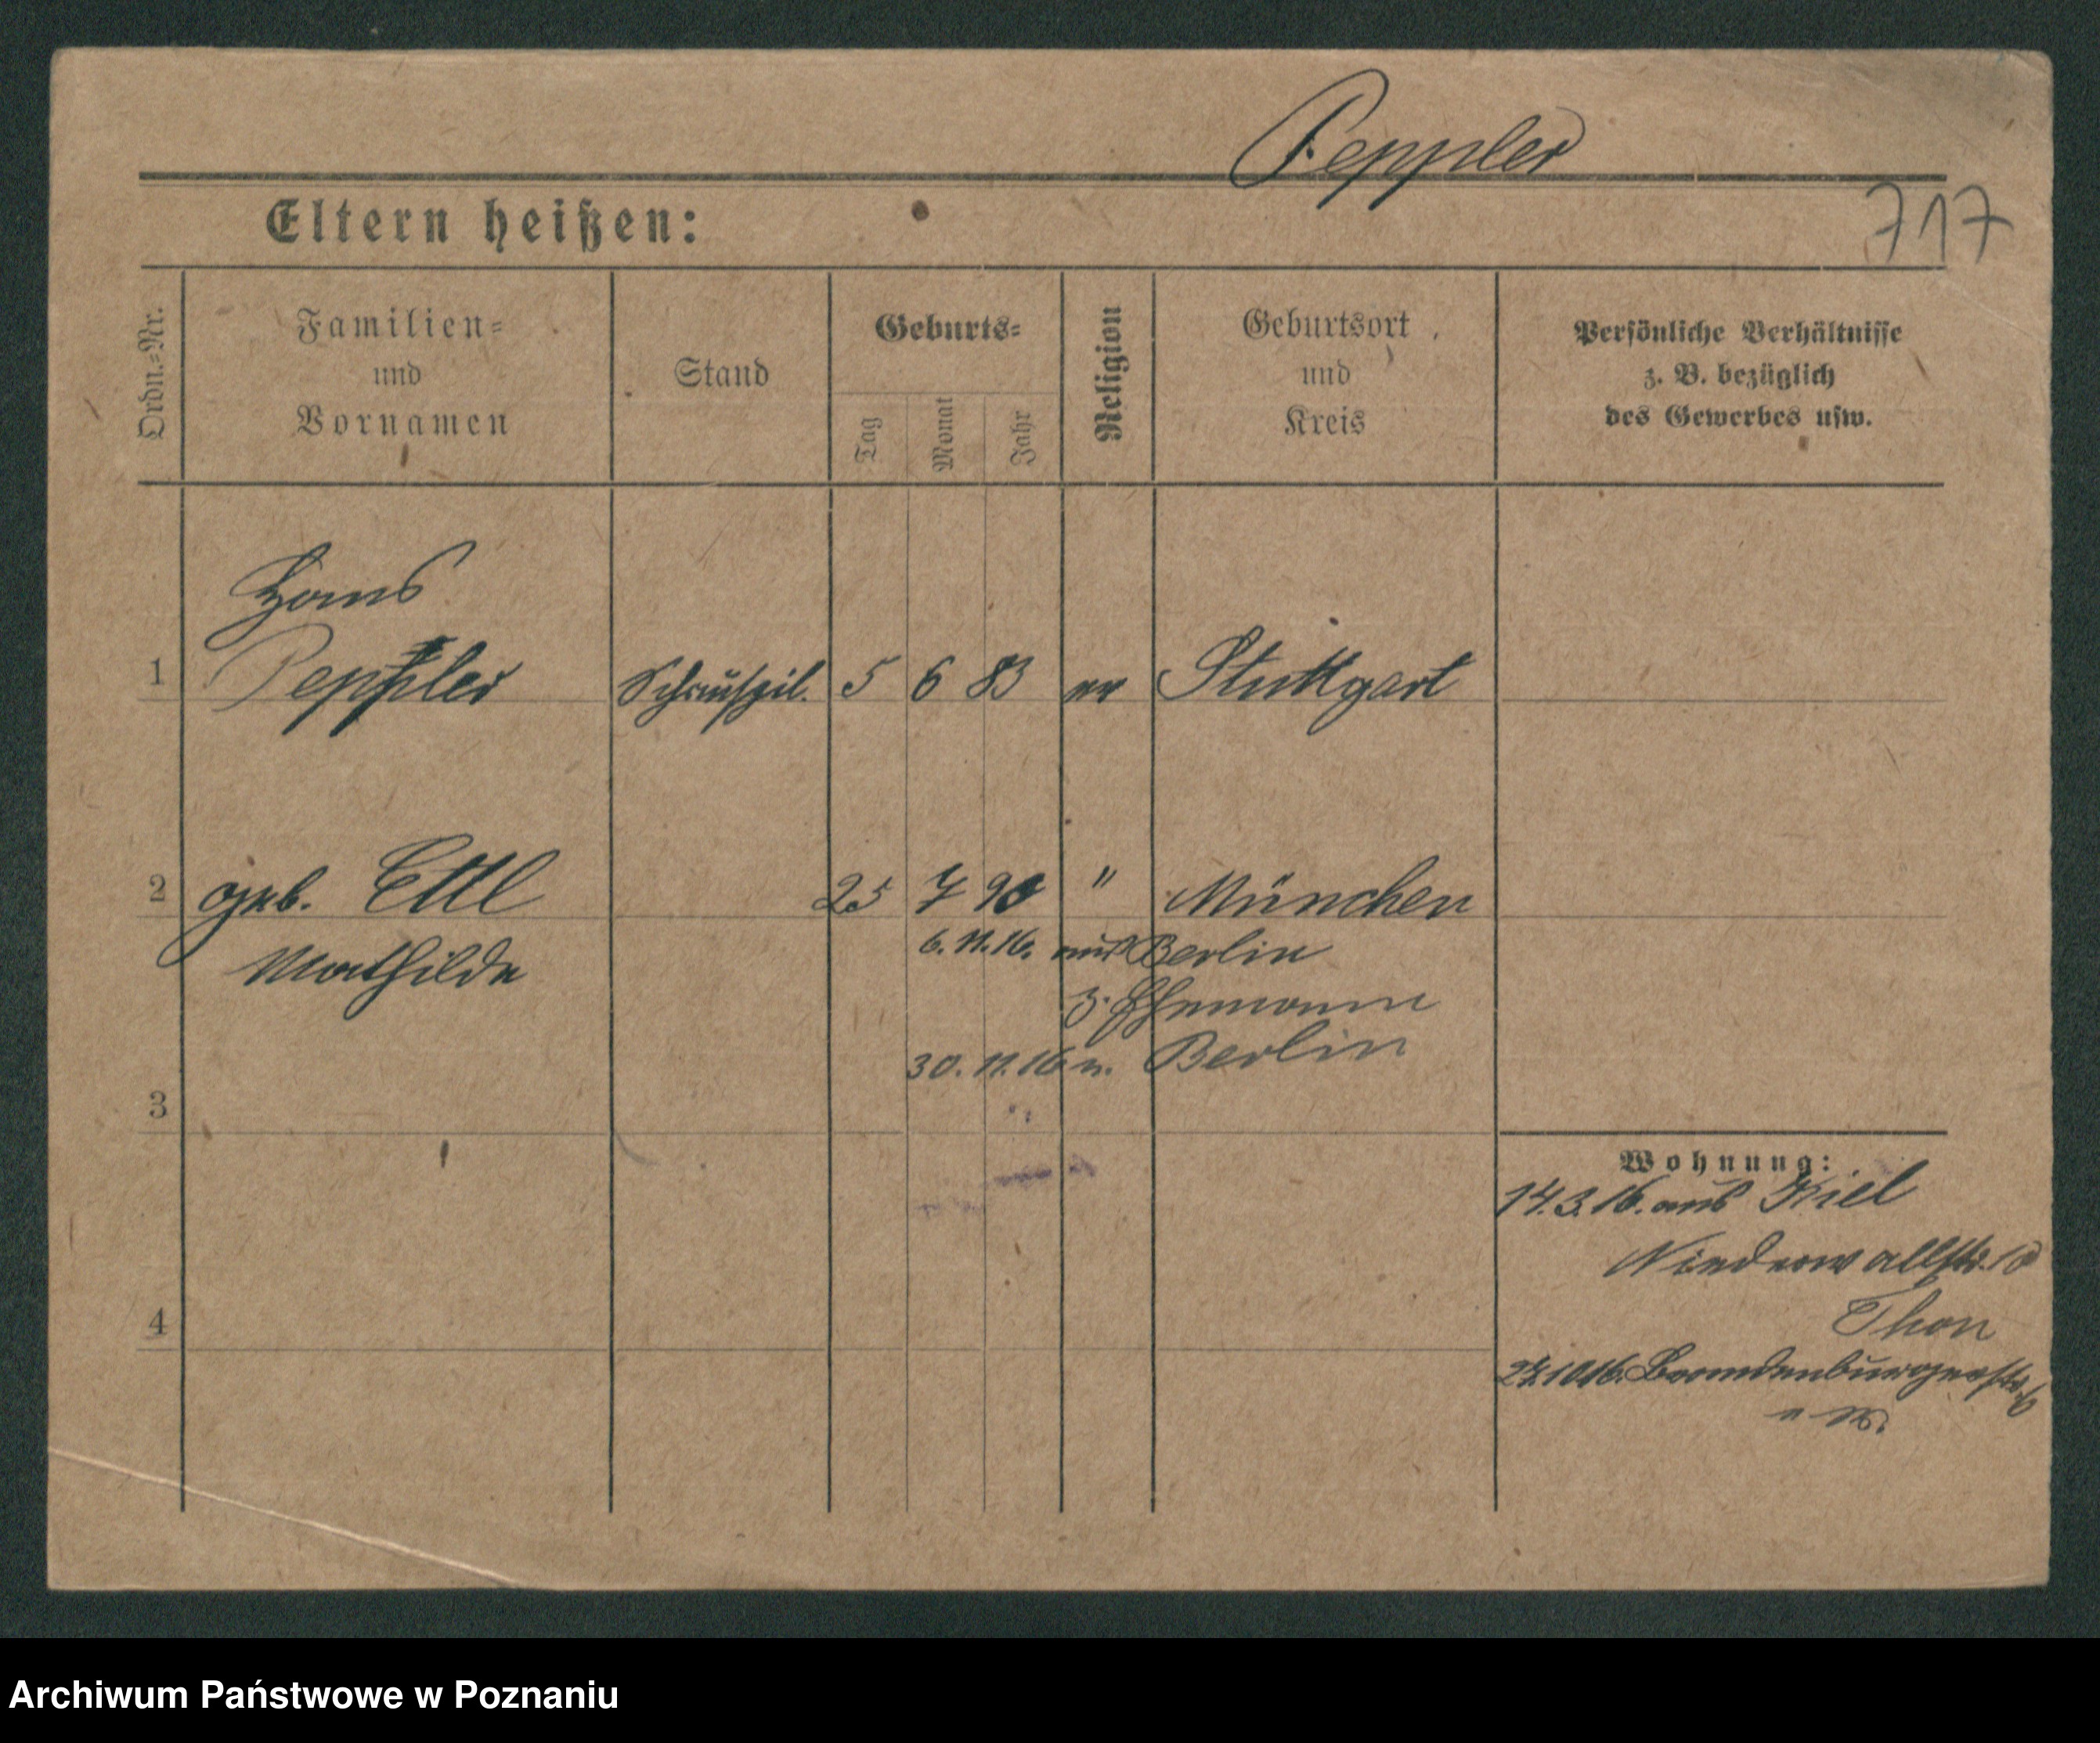 Peppler
717
Eltern heißen:
Ordn.=Nr.
Familien=
und
Vornamen
Stand
Geburts=
Tag
Monat
Jahr
Religion
Geburtsort
und
Kreis
Persönliche Verhältnisse
z. B. bezüglich
des Gewerbes usw.
Hans
1 Peppler Schauspil. 5 6 83 ev Stuttgart
2 geb. Ettl 25 7 90 " München
Mathilde
6. 11. 16. aus Berlin
z. Ehemann
30. 11. 16 n. Berlin
3
Wohnung:
14.3.16. aus Kiel
Niederwallstr. 10
Thon
4
27.10.16. Brandenburgerstr. 6
Archiwum Państwowe w Poznaniu